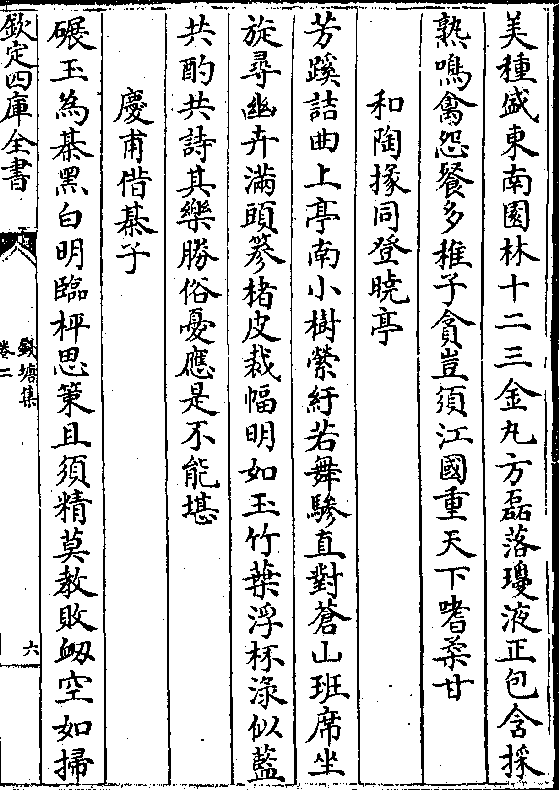 美種盛東南園林十二三金丸方磊落瓊液正包含採
熟鳴禽怨餐多稚子貪豈須江國重天下嗜柔甘
和陶掾同登曉亭
芳蹊詰曲上亭南小樹縈紆若舞驂直對蒼山班席坐
旋尋幽卉滿頭篸楮皮裁幅明如玉竹葉浮杯淥似藍
共酌共詩其樂勝俗憂應是不能堪
慶甫借棊子
碾玉為棊黑白明臨枰思策且須精莫教敗衂空如掃
欽定四庫全書
錢塘集
卷二
六